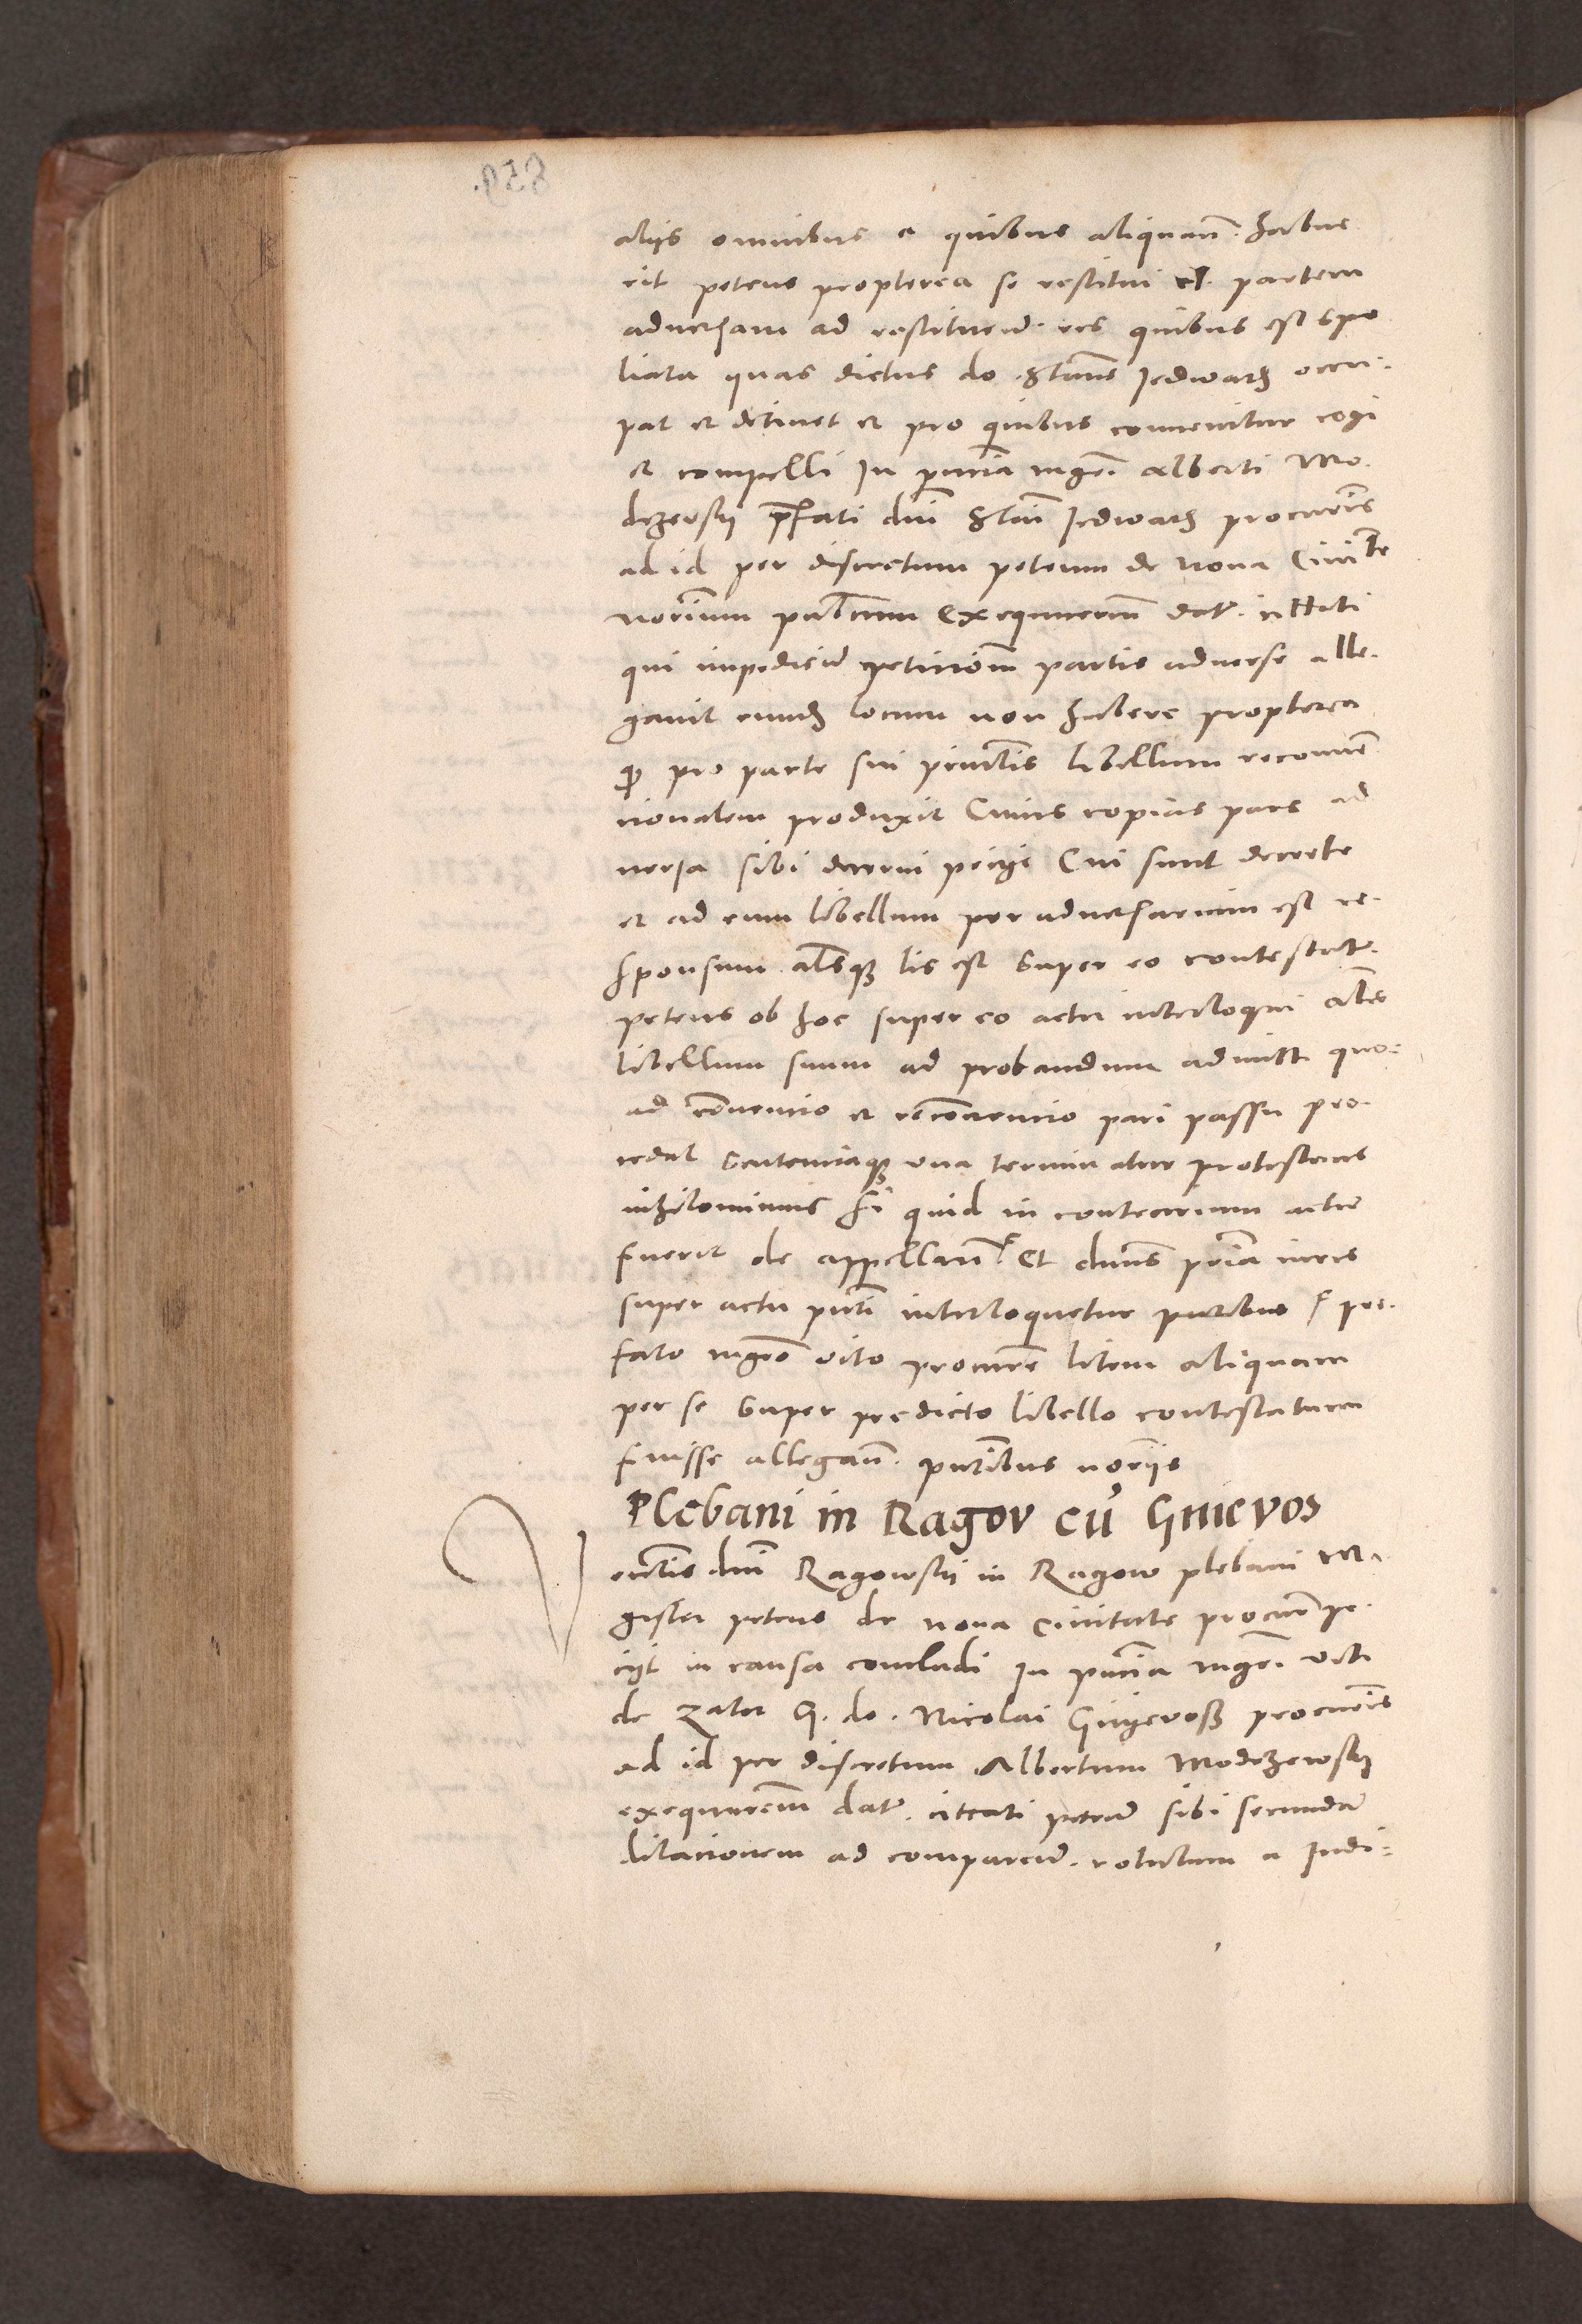 alys omnibus a quibus aliquam̄. habue
rit petens propterea se restitui et partem
adversam ad restituend. res quibus est spo
liata quas dictus do. Stanīs Jedwath occu-
pat et detinet et pro quibus convenitur cogi
et compelli In pn̄cia mgr̄i Alberti Mo
drzewsky p̄fati dnī Stanī Jedwath procur̄is
ad id per discretum petrum de Nova Civi^te
nor̄ium publicum Exequucōem dat. citati
qui impedien̄ peticionē partis adverse alle
gavit eundē locum non habere propterea
q pro parte sui pn̄cīlis libellum reconven
cionalem produxit Cuius copias pars ad
versa sibi decerni pecyt Cui sunt decrete
et ad eum libellum per adversarium est re
sponsum alsq lis est super eo contestat.
petens ob hoc super eo actu interloqui als
libellum suum ad probandum admitt. quo
ad convencio et reconvencio pari passu pro
cedat sentenciaq una terminatur protestans
nihilominus si quid in contrarium actu
fuerit de appellan̄ Et dnūs
super actu pn̄ti interloquetur pn̄tibus pre
fato mgr̄o vito procur̄e litem aliquam
per se super predicto libello contestatam
fuisse allegan̄. pn̄tibus nor̄ys
Plebani in Ragov cū Gnievos
Venlis dnī Ragowsky in Ragow plebani Ma
gister petrus de nova Civitate procur̄ pe
cyt in causa concludi In pn̄cia mgr̄i viti
de Zator G. do. Nicolai Gnyevosz procur̄is
ad id per discretum Albertum Modrzewsky
exequucōem dat. citati petend sibi secundā
dilacionem ad comparend. rotulum a Judi-